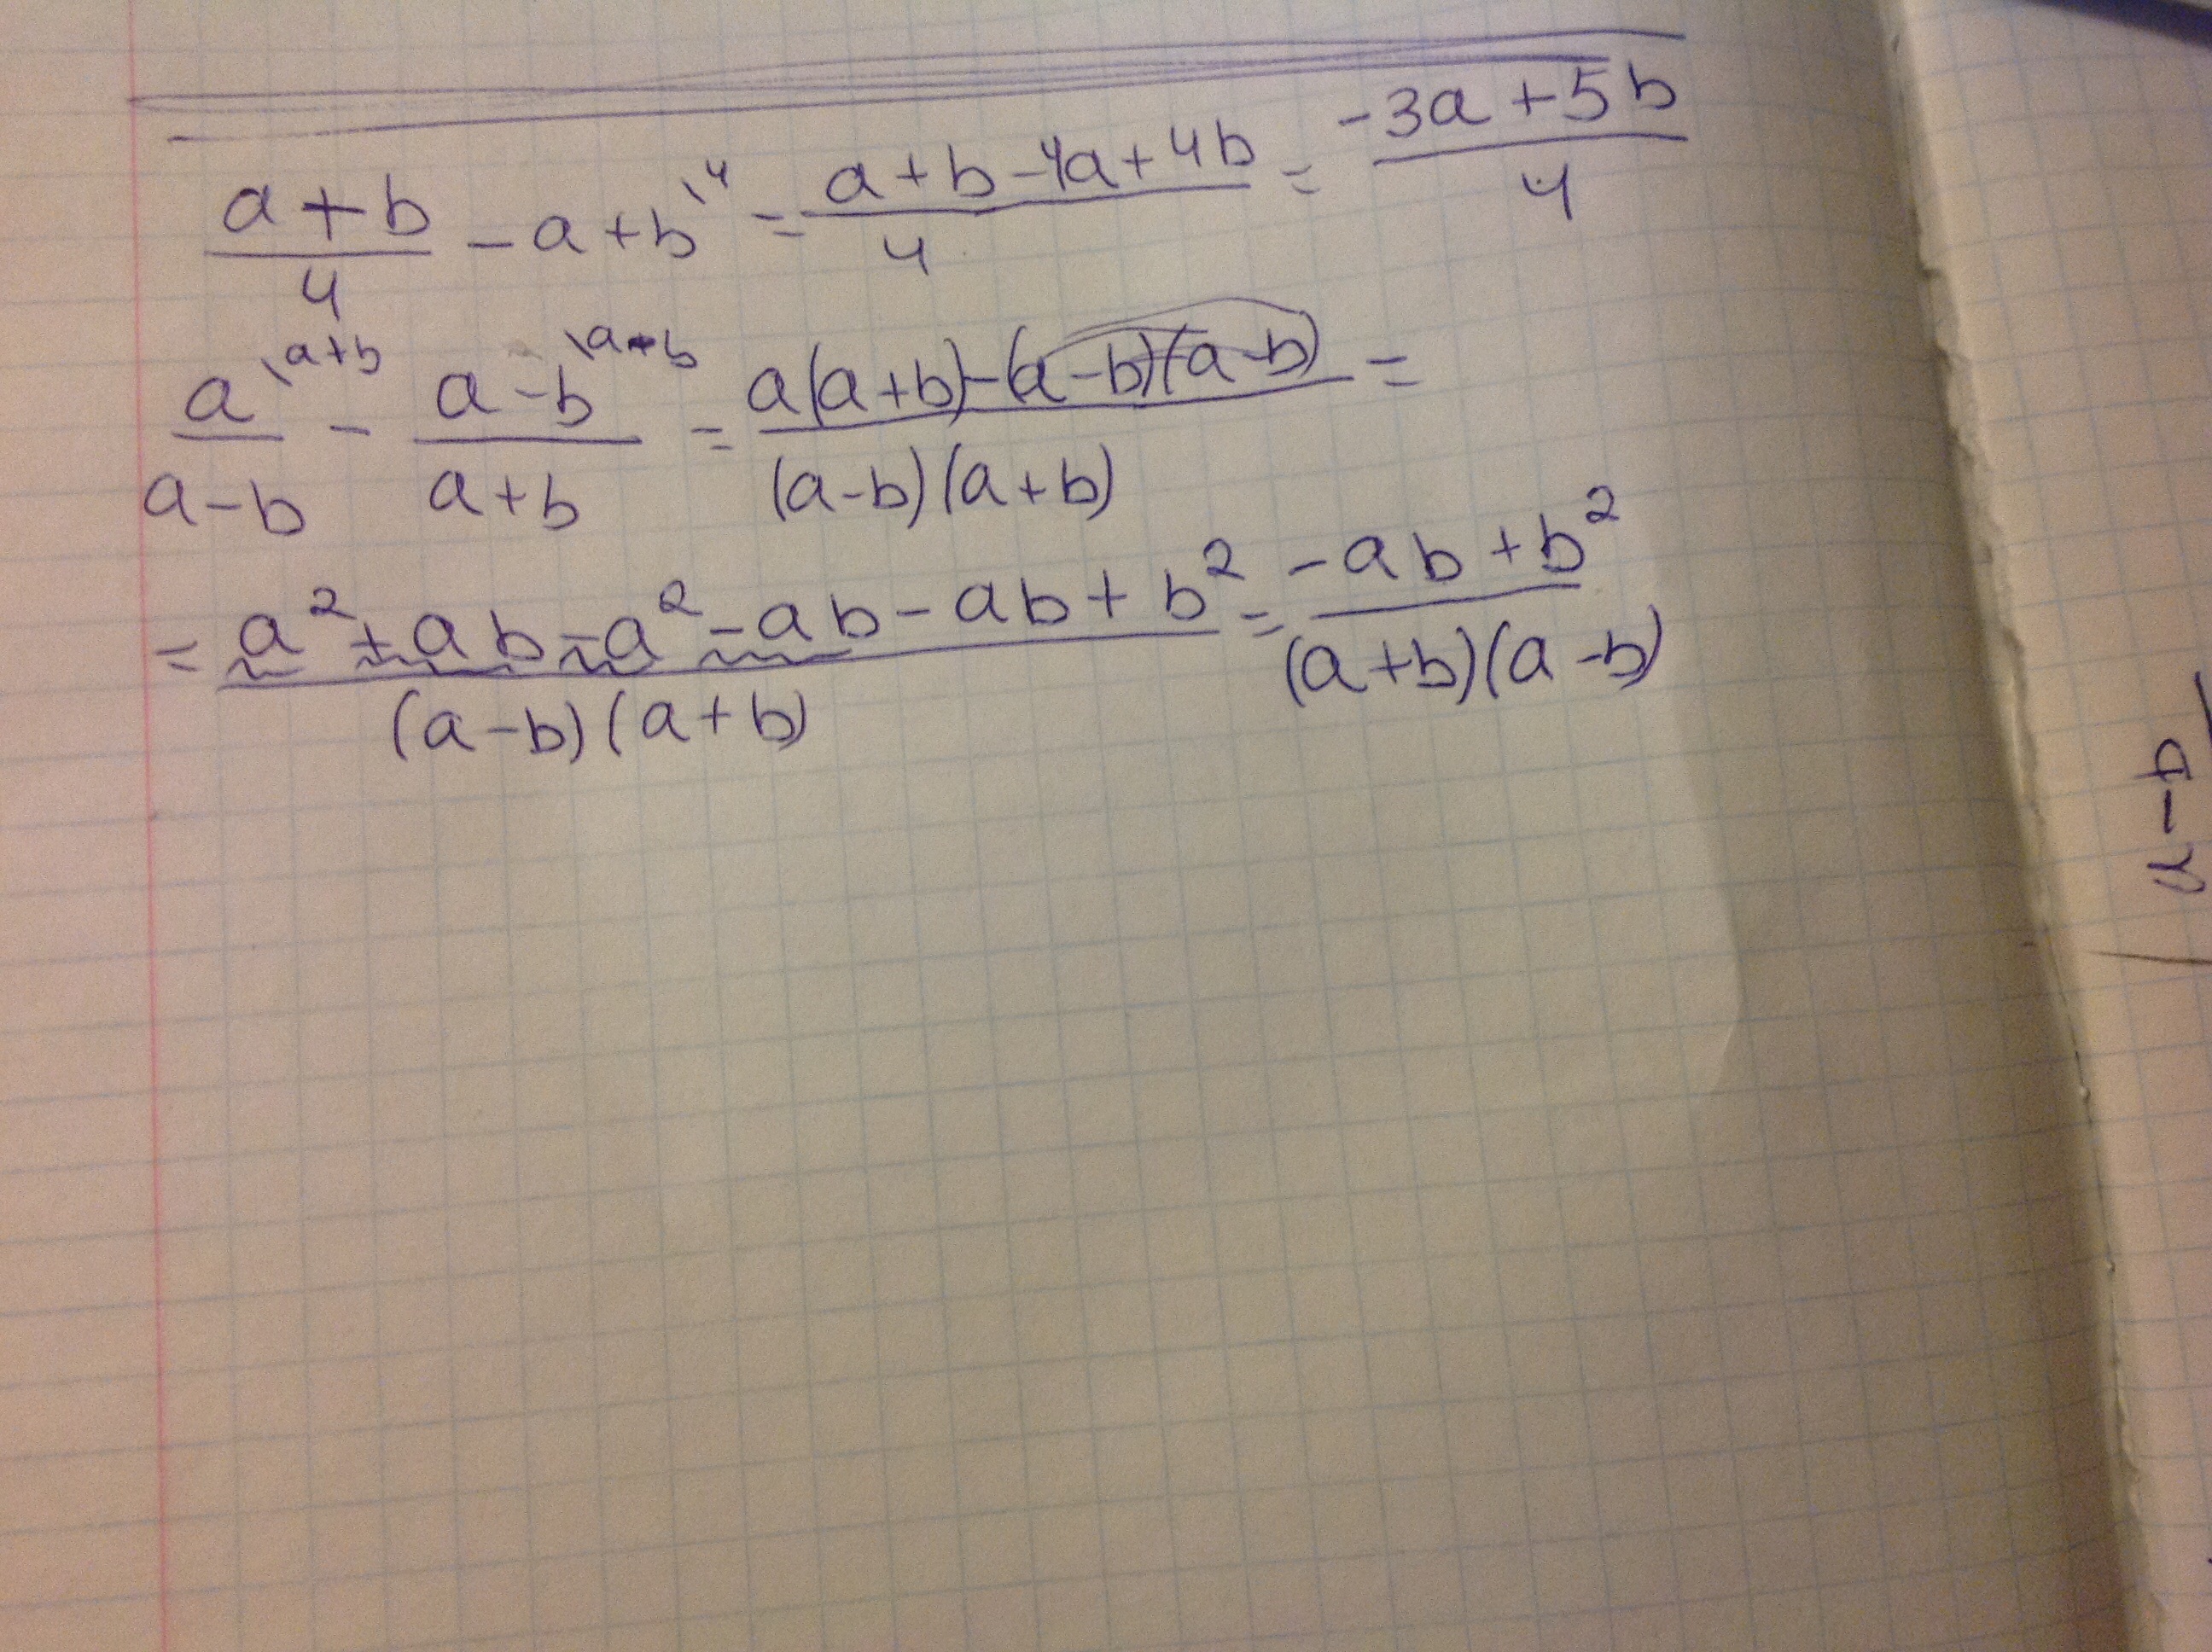 (a+b)/4 - a+b\4 = (a+b-4a+4b)/4 = (-3a+5b)/4
a\a+b/(a-b) - (a-b)\a-b/(a+b) = (a(a+b)-(a-b)(a-b))/((a-b)(a+b)) =
= (a²+ab-a²-ab-ab+b²)/((a-b)(a+b)) = (-ab+b²)/((a+b)(a-b))
a-b